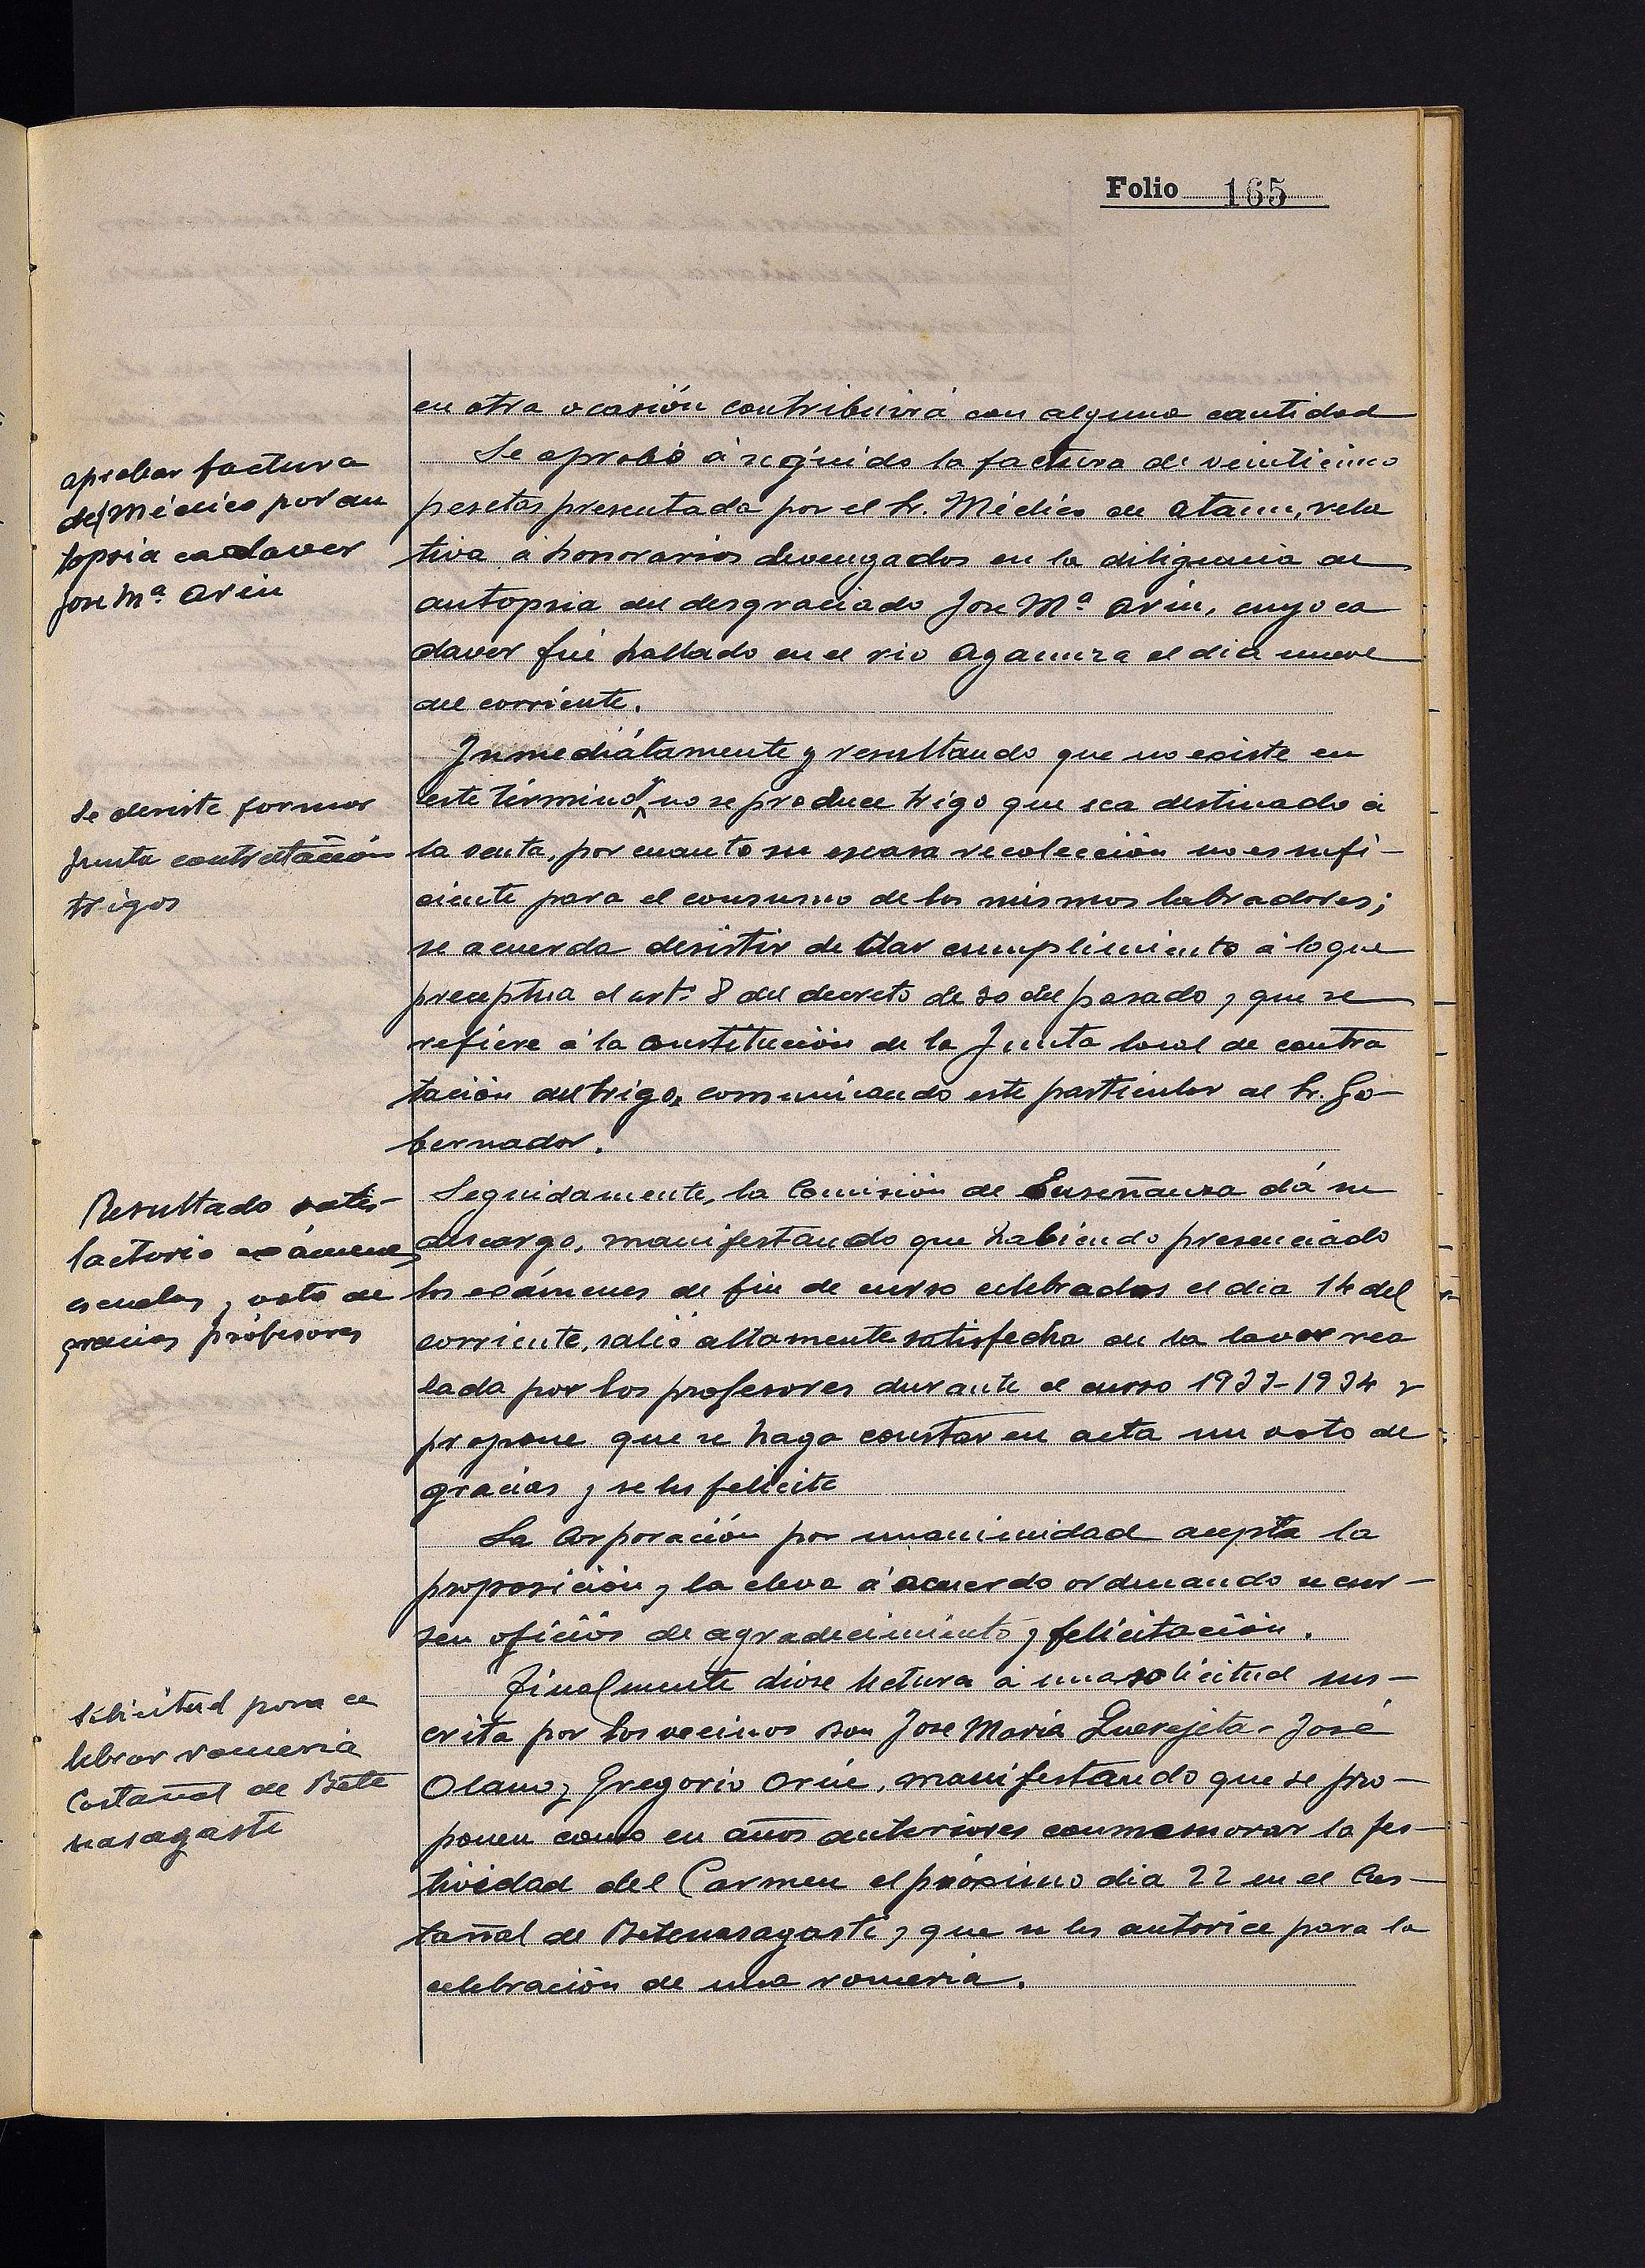 Folio 165
en otra ocasión contribuirá con alguna cantidad
aprobar factura
del Médico por au
topsia cadaver
Jose Mª Arin
Se aprobó á seguido la factura de veinticinco
pesetas presentada por el Sr. Médico de Ataun, rela
tiva á honorarios devengados en la diligencia de
autopsia del desgraciado Jose Mª Arin, cuyo ca
daver fué hallado en el rio Agaunza el dia nueve
del corriente.
Se desiste formar
Junta contratación
trigos
Inmediátamente y resultando que no existe en
este término y no se produce trigo que sea destinado á
la venta, por cuanto su escasa recolección no es sufi-
ciente para el consumo de los mismos labradores;
se acuerda desistir de dar cumplimiento á lo que
preceptua el artº 8 del decreto de 30 del pasado y que se
refiere á la constitución de la Junta local de contra
tación del trigo, comunicando este particular al Sr. Go-
bernador.
Resultado satis-
factorio exámenes
escuelas y voto de
gracias profesores
Seguidamente, la Comisión de Enseñanza dá su
descargo, manifestando que habiendo presenciado
los exámenes de fin de curso celebrados el dia 14 del
corriente, salió altamente satisfecha de la lavor rea
lada por los profesores durante el curso 1933-1934 y
propone que se haga constar en acta un voto de
gracias y se les felicite
La Corporación por unanimidad acepta la
proposición y la eleva á acuerdo ordenando se cur-
sen oficios de agradecimiento y felicitación.
Solicitud para ce
lebrar romeria
Castañal de Bete
nasagasti
Finalmente diose lectura á una solicitud sus-
crita por los vecinos son Jose Maria Querejeta - José
Olano y Gregorio Arin, manifestando que se pro-
ponen como en años anteriores conmemorar la fes-
tividad del Carmen el próximo dia 22 en el Cas-
tañal de Betenasagasti y que se les autorice para la
celebración de una romeria.